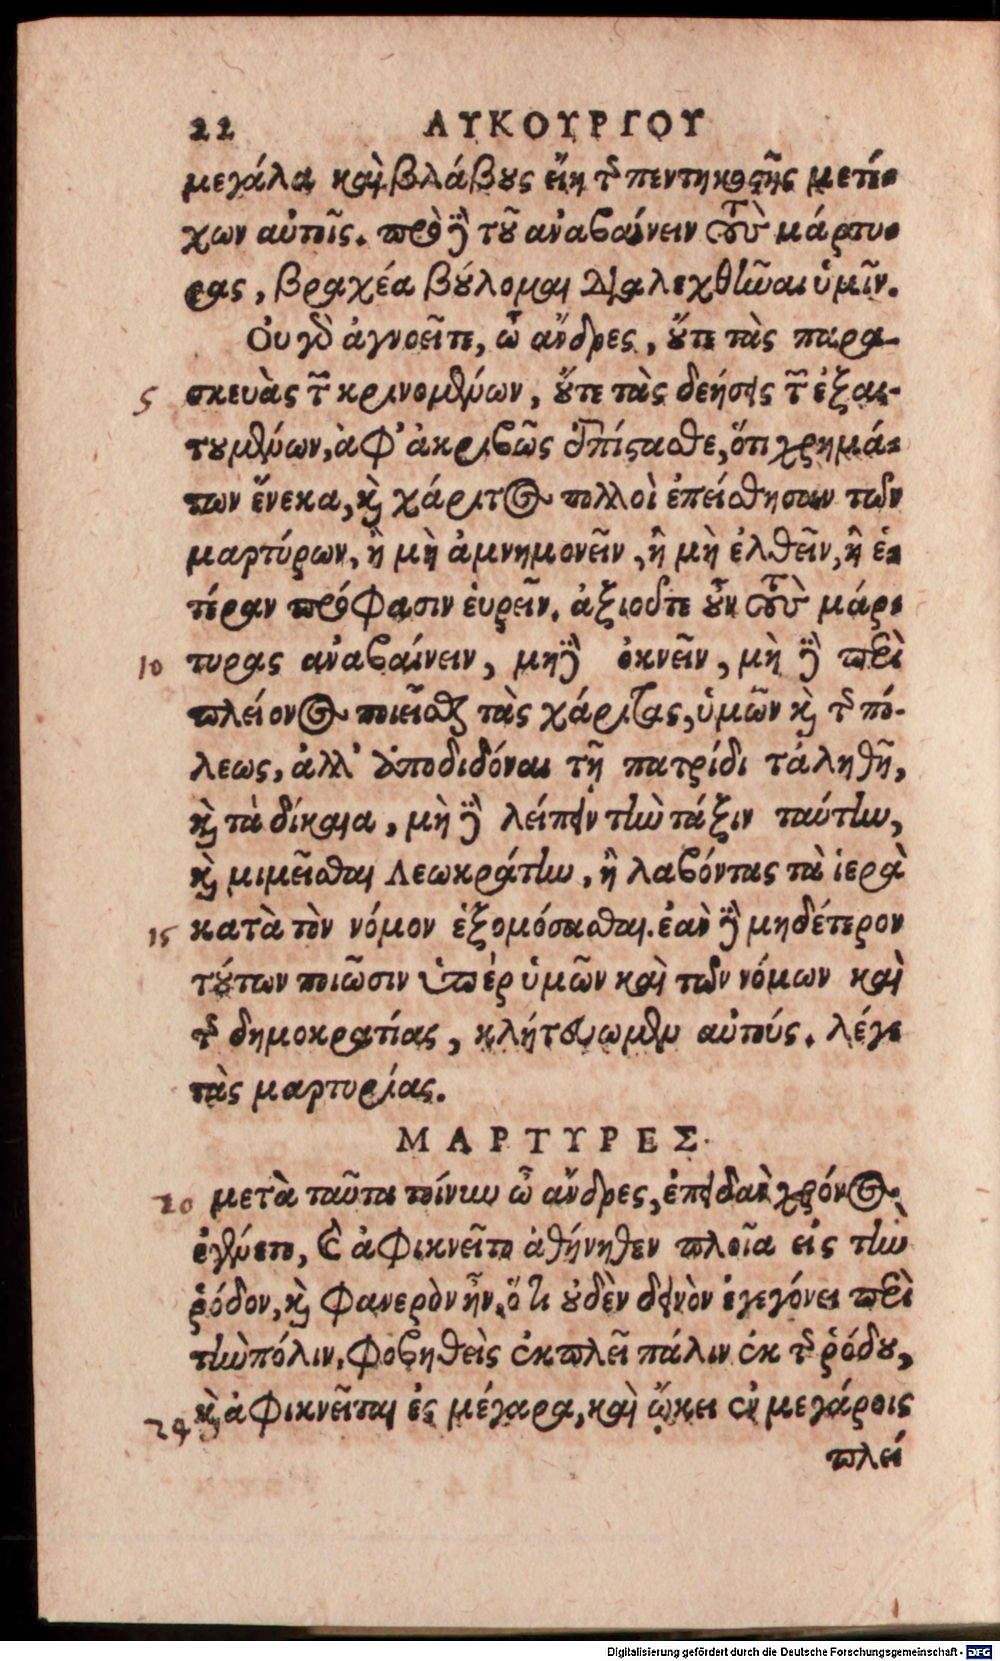 22 ΛΥΚΟΥΡΓΟΥ
μεγάλα καὶ βλάβους εἴη τῆς πεντηκοστῆς μετέ-
χων αὐτοῖς. πρὸ δὲ τοῦ ἀναβαίνειν τοὺς μάρτυ-
ρας, βραχέα βούλομαι διαλεχθῆναι ὑμῖν.
Οὐ γὰρ ἀγνοεῖτε, ὦ ἄνδρες, οὔτε τὰς παρα-
5 σκευὰς τῶν κρινομένων, οὔτε τὰς δεήσεις τῶν ἐξαι-
τουμένων, ἀλλ' ἀκριβῶς ἐπίστασθε, ὅτι χρημά-
των ἕνεκα, καὶ χάριτος πολλοὶ ἐπείσθησαν τῶν
μαρτύρων, ἢ μὴ ἀμνημονεῖν, ἢ μὴ ἐλθεῖν, ἢ ἑ-
τέραν πρόφασιν εὑρεῖν. ἀξιοῦτε οὖν τοὺς μάρ-
10 τυρας ἀναβαίνειν, μὴ δὲ ὀκνεῖν, μὴ δὲ περὶ
πλείονος ποιεῖσθαι τὰς χάριτας, ὑμῶν καὶ τῆς πό-
λεως, ἀλλ' ἀποδιδόναι τῇ πατρίδι τἀληθῆ,
καὶ τὰ δίκαια, μὴ δὲ λείπειν τὴν τάξιν ταύτην,
καὶ μιμεῖσθαι Λεωκράτην, ἢ λαβόντας τὰ ἱερὰ
15 κατὰ τὸν νόμον ἐξομόσασθαι. ἐὰν δὲ μηδέτερον
τούτων ποιῶσιν ὑπὲρ ὑμῶν καὶ τῶν νόμων καὶ
τῆς δημοκρατίας, κλητεύσωμεν αὐτούς. λέγε
τὰς μαρτυρίας.
ΜΑΡΤΥΡΕΣ.
20 μετὰ ταῦτα τοίνυν ὦ ἄνδρες, ἐπειδὰν χρόνος
ἐγένετο, καὶ ἀφικνεῖτο ἀθήνηθεν πλοῖα εἰς τὴν
ῥόδον, καὶ φανερὸν ἦν, ὅτι οὐδὲν δεινὸν ἐγεγόνει περὶ
τὴν πόλιν, φοβηθεὶς ἐκπλεῖ πάλιν ἐκ τῆς ῥόδου,
24 καὶ ἀφικνεῖται ἐς μέγαρα, καὶ ᾤκει ἐν μεγάροις
πλεί
Digitalisierung gefördert durch die Deutsche Forschungsgemeinschaft - DFG